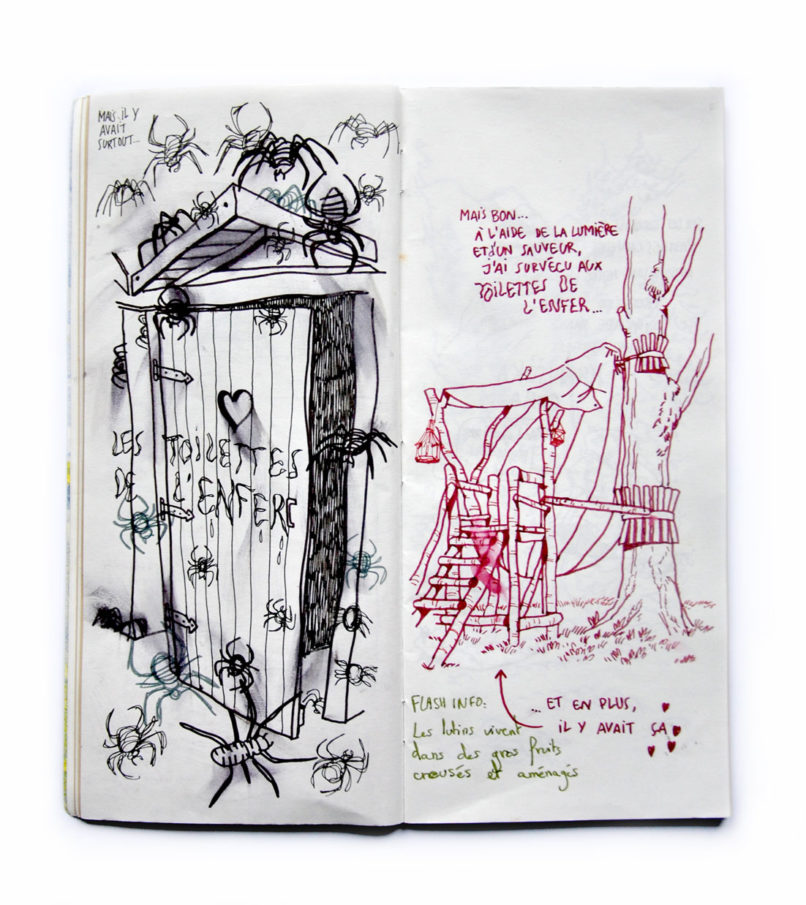 MAIS IL Y
AVAIT
SURTOUT...
LES TOILETTES
DE L'ENFERE
MAIS BON...
À L'AIDE DE LA LUMIÈRE
ET D'UN SAUVEUR,
J'AI SURVÉCU AUX
TOILETTES DE
L'ENFER...
FLASH INFO:
Les lutins vivent
dans des gros fruits
creusés et aménagés
... ET EN PLUS,
IL Y AVAIT ÇA